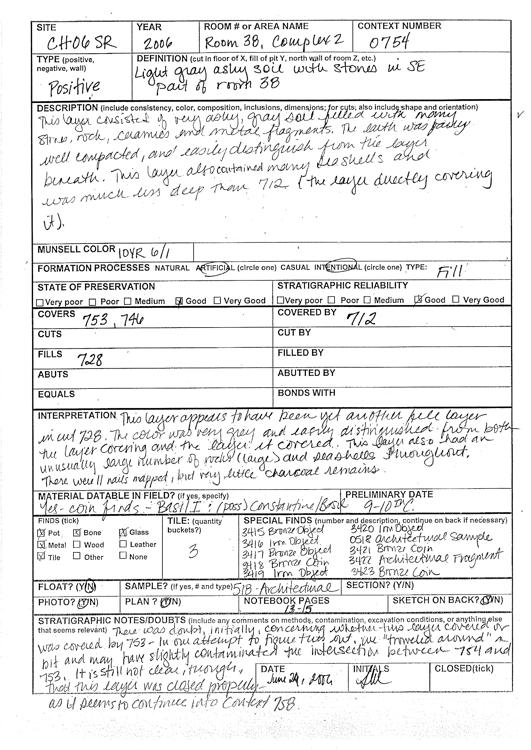 SITE YEAR ROOM # or AREA NAME CONTEXT NUMBER
CH06 SR 2006 Room 38, Complex 2 0754
TYPE (positive, negative, wall) DEFINITION (cut in floor of X, fill of pit Y, north wall of room Z, etc.)
Positive Light gray ashy soil with stones in SE
part of room 38
DESCRIPTION (include consistency, color, composition, inclusions, dimensions; for cuts, also include shape and orientation)
This layer consisted of very ashy, gray soil filled with many
stones, rock, ceramics and metal fragments. The earth was fairly
well compacted, and easily distinguish from the layer
beneath. This layer also contained many seashells and
was much less deep than 712 (the layer directly covering
it).
MUNSELL COLOR 10YR 6/1
FORMATION PROCESSES NATURAL ARTIFICIAL (circle one) CASUAL INTENTIONAL (circle one) TYPE: Fill
STATE OF PRESERVATION STRATIGRAPHIC RELIABILITY
Very poor Poor Medium Good Very Good Very poor Poor Medium Good Very Good
COVERS 753, 746 COVERED BY 712
CUTS CUT BY
FILLS 728 FILLED BY
ABUTS ABUTTED BY
EQUALS BONDS WITH
INTERPRETATION This layer appears to have been yet another fill layer
in cut 728. The color was very grey and easily distinguished from both
the layer covering and the layer it covered. This layer also had an
unusually large number of rocks (large) and seashells throughout.
There were 11 nails mapped, but very little charcoal remains.
MATERIAL DATABLE IN FIELD? (if yes, specify) PRELIMINARY DATE
Yes - coin finds - Basil I : (poss) Constantine/Basil 9-10th C.
FINDS (tick) TILE: (quantity buckets?) SPECIAL FINDS (number and description, continue on back if necessary)
Pot Bone Glass
Metal Wood Leather
Tile Other None
3
3415 Bronze Object 3420 Iron Object
3416 Iron Object 0518 Architectural Sample
3417 Bronze Object 3421 Bronze Coin
3418 Bronze Object 3422 Architectural Fragment
3419 Iron Object 3423 Bronze Coin
FLOAT? (Y/N) SAMPLE? (If yes, # and type) 518-Architectural SECTION? (Y/N)
PHOTO? (Y/N) PLAN? (Y/N) NOTEBOOK PAGES 13-15 SKETCH ON BACK? (Y/N)
STRATIGRAPHIC NOTES/DOUBTS (include any comments on methods, contamination, excavation conditions, or anything else
that seems relevant) There was doubt, initially, concerning whether this layer covered or
was covered by 753 - in our attempt to figure this out, we "troweled around" a
bit and may have slightly contaminated the intersection between 754 and
753. It is still not clear, though,
that this layer was closed properly -
as it seems to continue into Context 758.
DATE June 29, 2006 INITIALS CLOSED(tick)